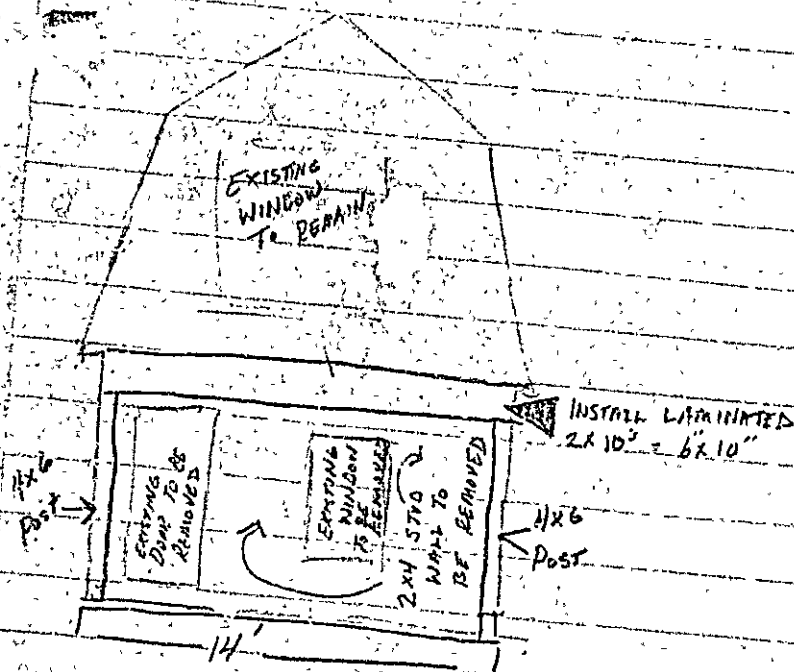 EXISTING
WINDOW
To REMAIN
INSTALL LAMINATED
2X10'S = 6"X10"
4X6
Post
EXISTING
DOOR TO BE
REMOVED
EXISTING
WINDOW
TO BE
REMOVED
2X4 STUD
WALL TO
BE REMOVED
4X6
Post
14'